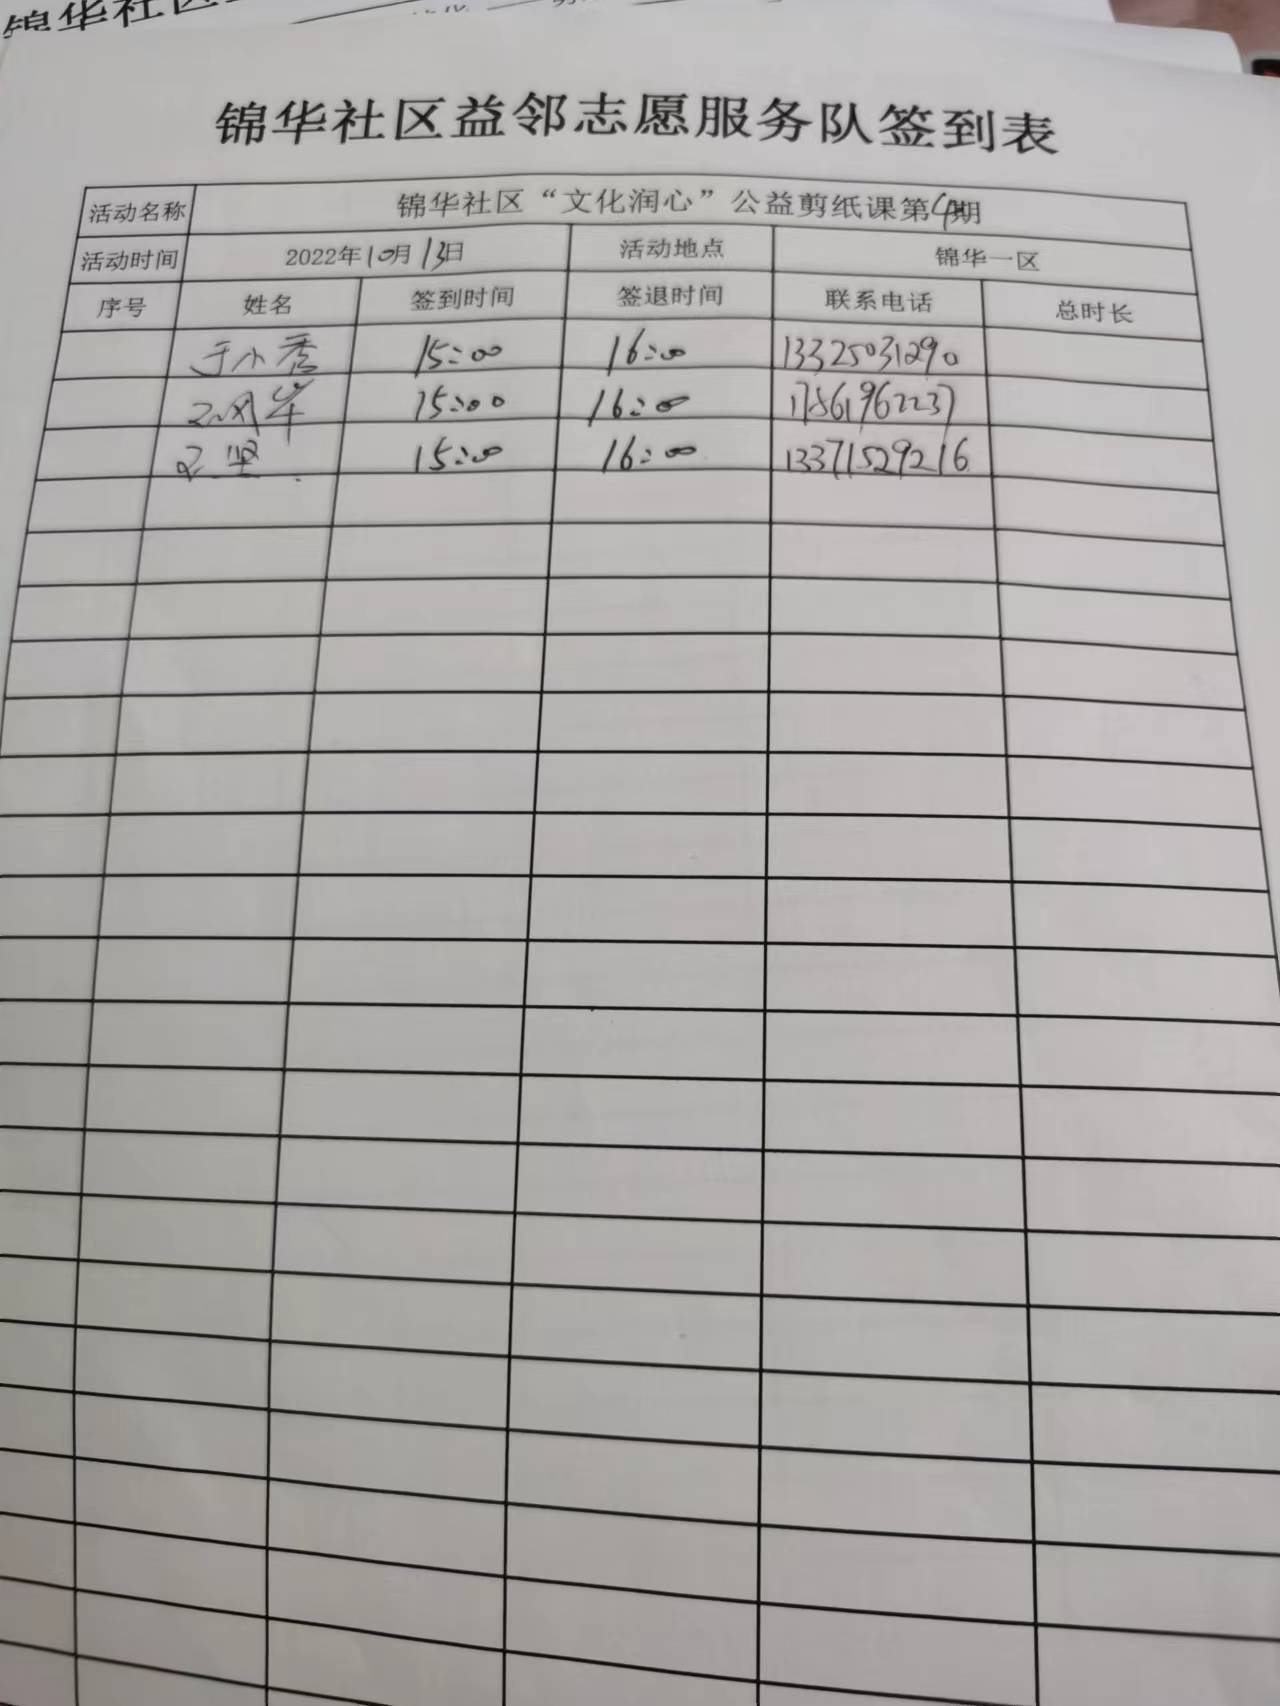 锦华社区
锦华社区益邻志愿服务队签到表
活动名称 锦华社区“文化润心”公益剪纸课第4期
活动时间 2022年10月13日 活动地点 锦华一区
序号 姓名 签到时间 签退时间 联系电话 总时长
于小秀 15:00 16:00 13325031290
王凤华 15:00 16:00 17561962237
王坚 15:00 16:00 13371529216